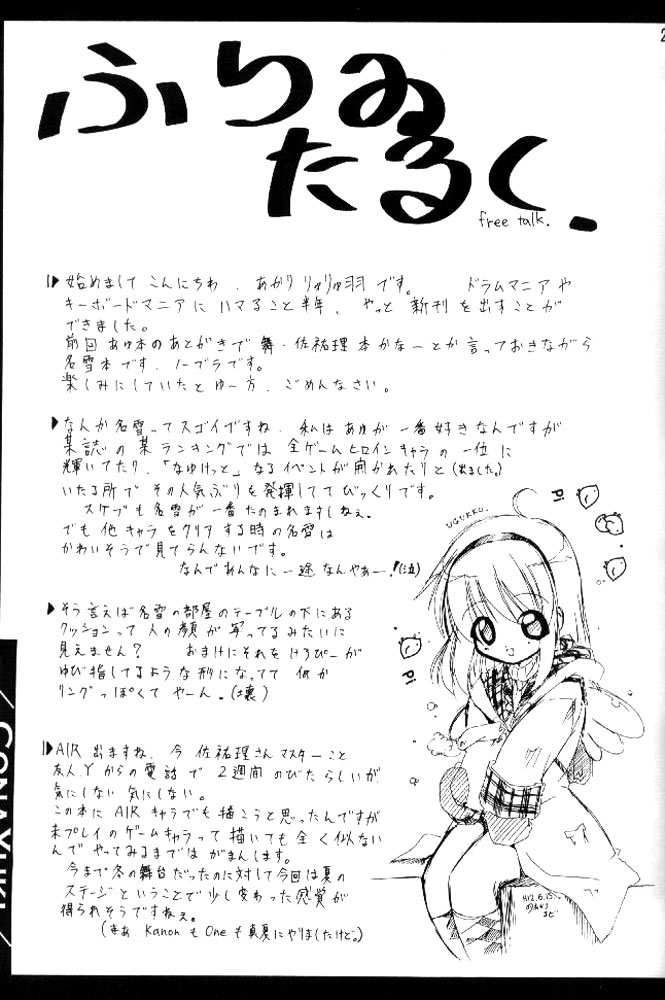 ふりゐ
たるく.
free talk.
始めまして こんにちわ、あかり りゅりゅ羽 です。 ドラムマニアや
キーボードマニアに ハマること半年、やっと 新刊を出すことが
できました。
前回 あゆ本のあとがきで 舞・佐祐理 本かなーとか言っておきながら
名雪本です、ノーブラです。
楽しみにしていたとゆー方、ごめんなさい。
なんか名雪ってスゴイですね、私は あゆが 一番好きなんですが
某誌の某ランキングでは 全ゲームヒロインキャラの 一位に
輝いてたり、「なゆけっと」なるイベントが開かれたりと(出ました。)
いたる所で その人気ぶりを発揮しててびっくりです。
スケブも名雪が一番たのまれますしねぇ。
でも他キャラをクリアする時の名雪は
かわいそうで見てらんないです。
なんであんなに一途なんやぁー、!(泣)
そう言えば名雪の部屋のテーブルの下にある
クッションって人の顔が写ってるみたいに
見えません? おまけにそれをけろぴーが
ゆび指してるような形になってて 何か
リングっぽくて やーん。(壊)
AIR 出ますね、今 佐祐理さんマスターこと
友人.Yからの電話で 2週間 のびたらしいが
気にしない 気にしない。
この本に AIR キャラでも描こうと思ったんですが
未プレイのゲームキャラって描いても全く似ない
んで やってみるまでは がまんします。
今まで冬の舞台だったのに対して今回は夏の
ステージということで少し変わった感覚が
得られそうですねぇ。
(まあ Kanon も One も真夏にやりましたけど。)
UGUKKO.
Pi
Pi
H12.6.15.
CONAYUKI
2